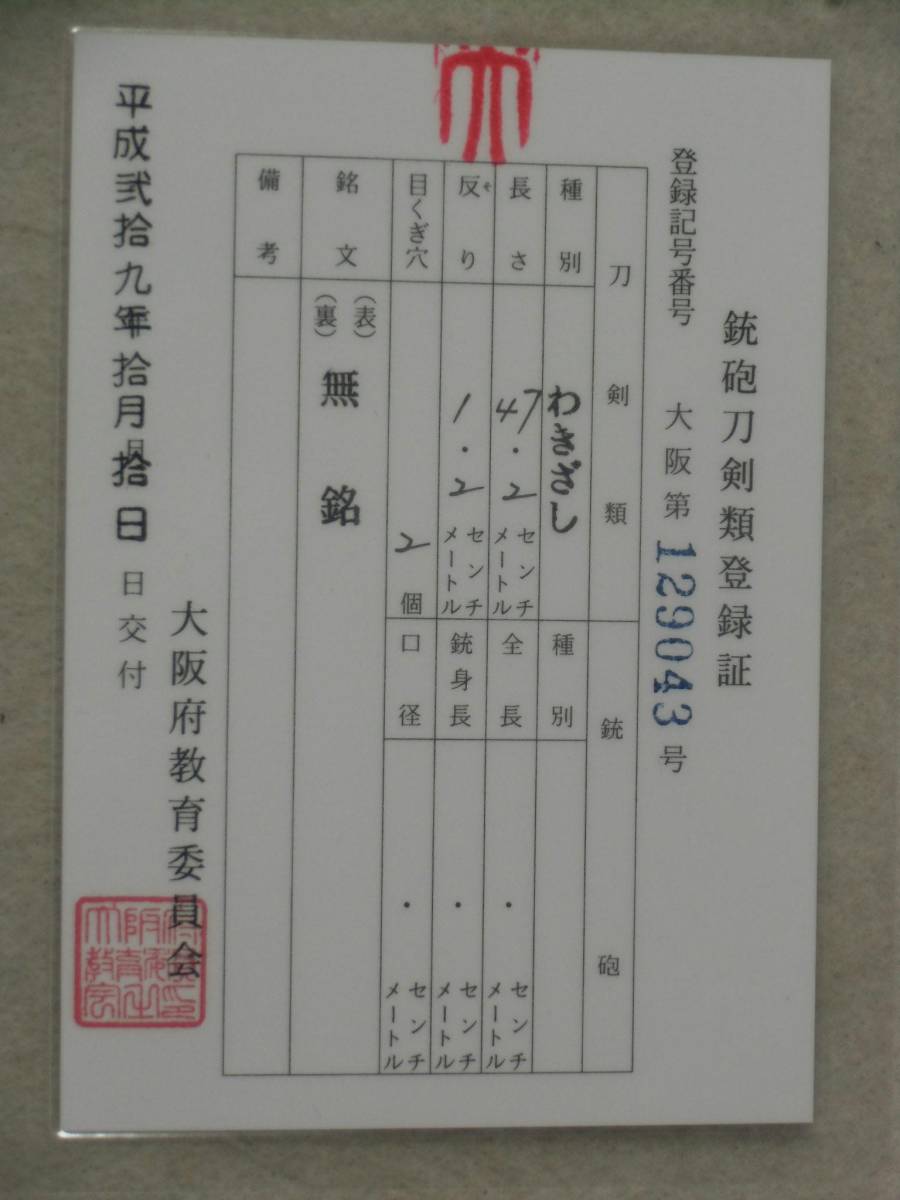 銃砲刀剣類登録証
登録記号番号 大阪第 129043 号
刀剣類
種別 わきざし
長さ 47.2 センチメートル
反り そ 1.2 センチメートル
目くぎ穴 2 個
銃砲
種別
全長 . センチメートル
銃身長 . センチメートル
口径 . センチメートル
銘文 (表) (裏) 無銘
備考
平成弐拾九年拾月拾日 日交付
大阪府教育委員会